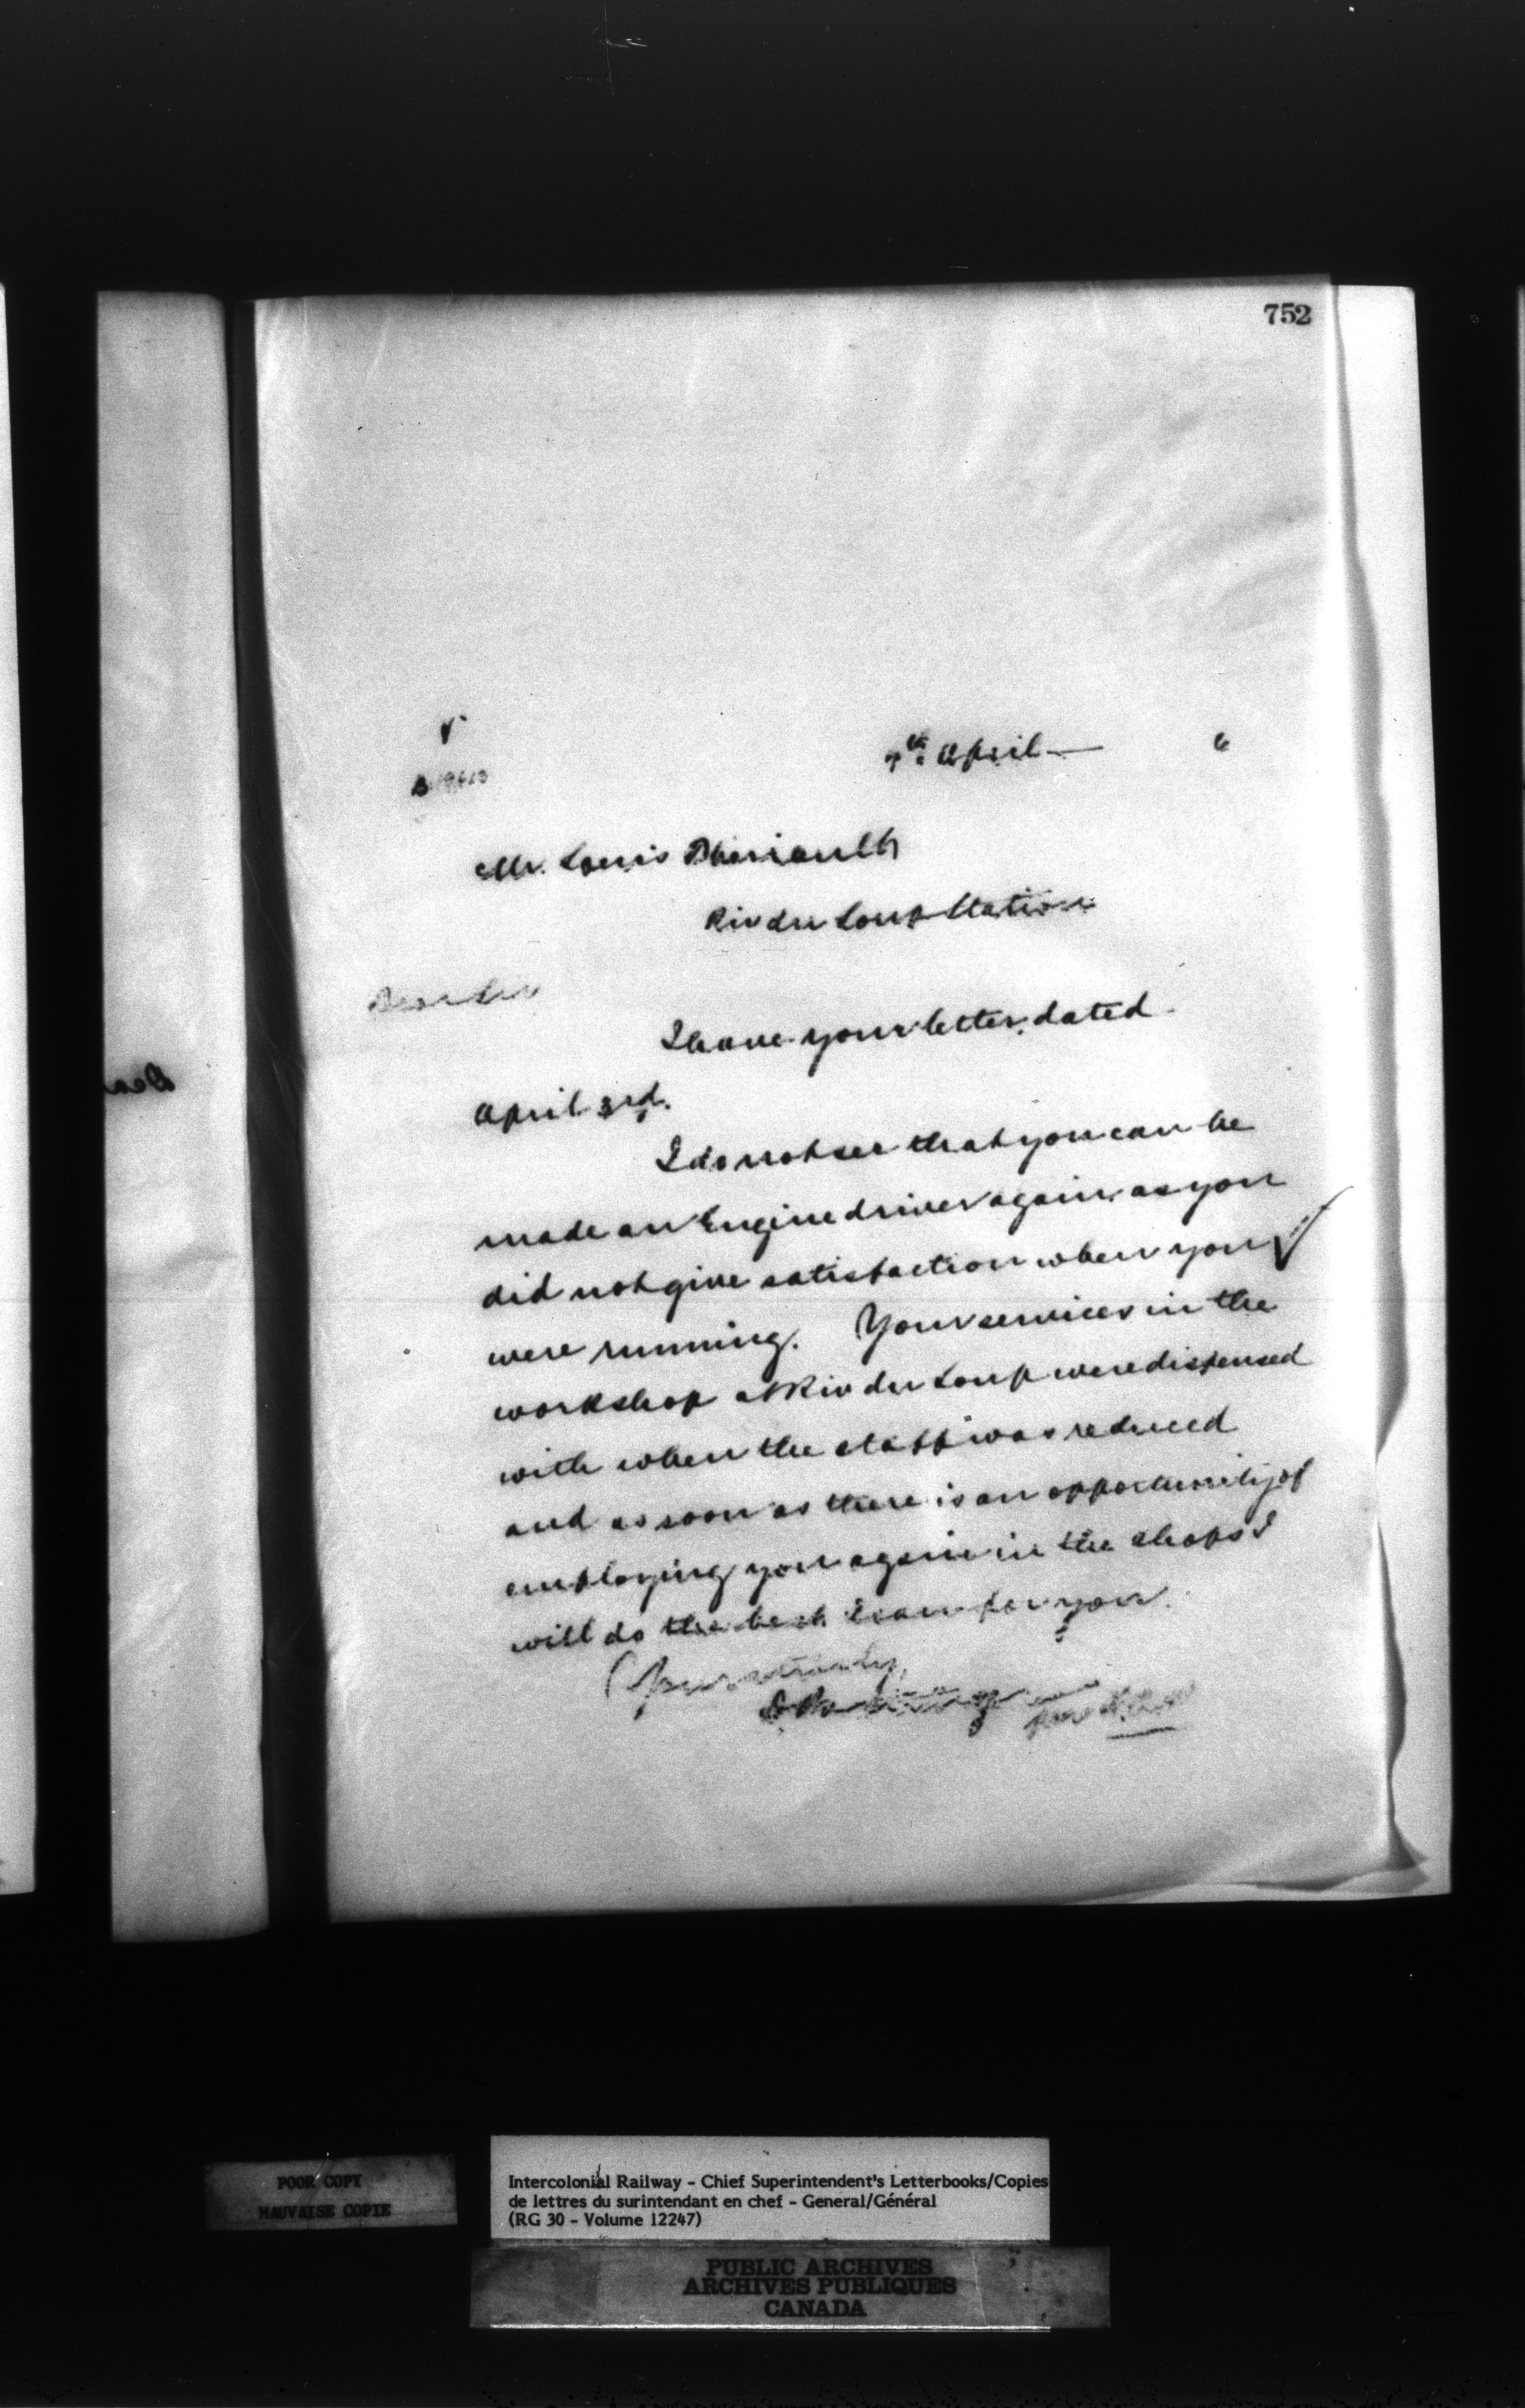 752
7th April — 6
Mr. Louis Theriault
Riv du Loup Station
Dear Sir
I have your letter, dated
April 3rd.
I do not see that you can be
made an Engine driver again as you
did not give satisfaction when you
were running. Your services in the
workshop at Riv du Loup were dispensed
with when the staff was reduced
and as soon as there is an opportunity of
employing you again in the shops I
will do the best I can for you.
Yours truly,
POOR COPY
MAUVAISE COPIE
Intercolonial Railway - Chief Superintendent's Letterbooks/Copies
de lettres du surintendant en chef - General/Général
(RG 30 - Volume 12247)
PUBLIC ARCHIVES
ARCHIVES PUBLIQUES
CANADA